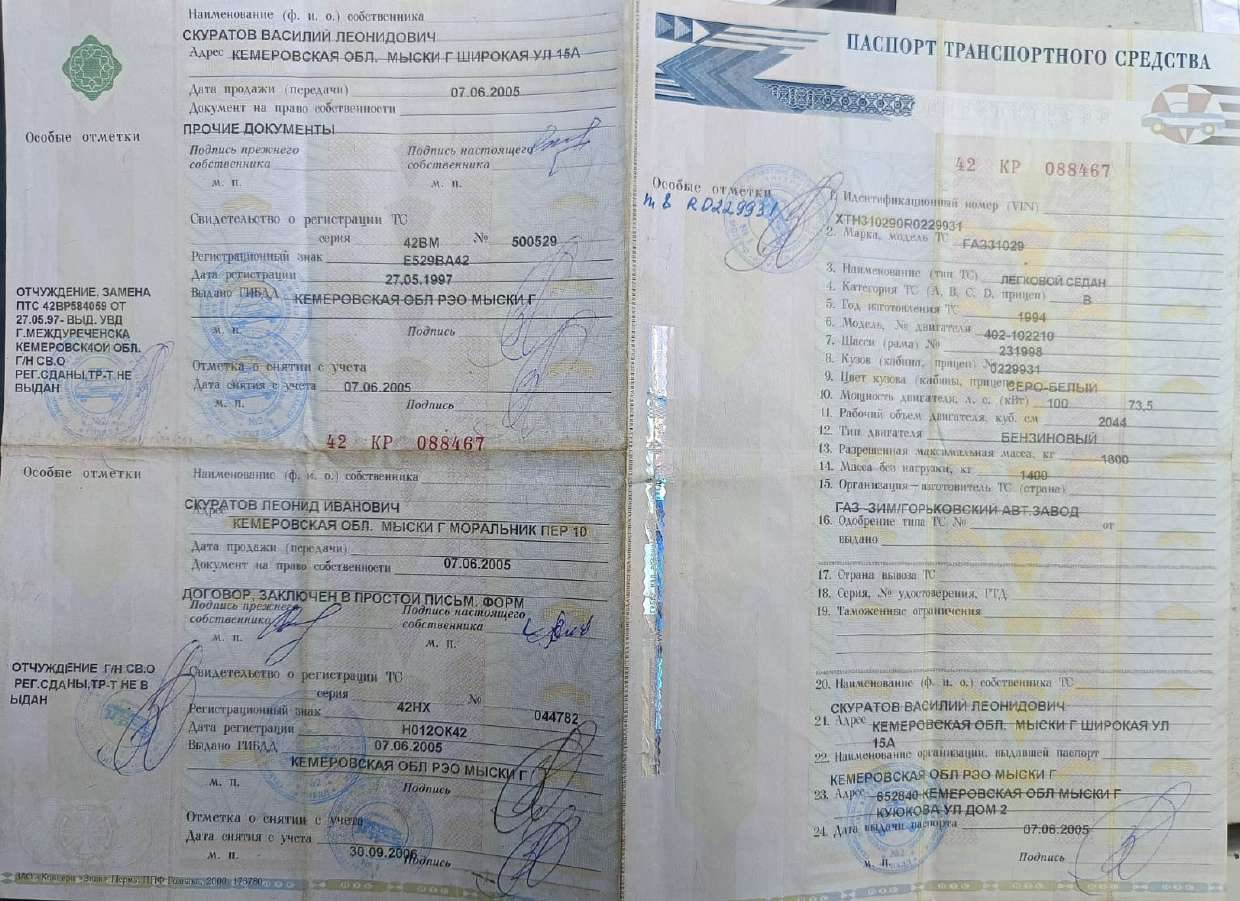 Наименование (ф. и. о.) собственника
СКУРАТОВ ВАСИЛИЙ ЛЕОНИДОВИЧ
Адрес КЕМЕРОВСКАЯ ОБЛ. МЫСКИ Г ШИРОКАЯ УЛ 15А
Дата продажи (передачи) 07.06.2005
Документ на право собственности
Особые отметки
ПРОЧИЕ ДОКУМЕНТЫ
Подпись прежнего собственника
Подпись настоящего собственника
м. п. м. п.
Свидетельство о регистрации ТС
серия 42ВМ № 500529
Регистрационный знак Е529ВА42
Дата регистрации 27.05.1997
Выдано ГИБДД КЕМЕРОВСКАЯ ОБЛ РЭО МЫСКИ Г
м. п. Подпись
ОТЧУЖДЕНИЕ, ЗАМЕНА
ПТС 42ВР584059 ОТ
27.05.97- ВЫД. УВД
Г.МЕЖДУРЕЧЕНСКА
КЕМЕРОВСК4ОЙ ОБЛ.
Г/Н СВ.О
РЕГ.СДАНЫ,ТР-Т НЕ
ВЫДАН
Отметка о снятии с учета
Дата снятия с учета 07.06.2005
м. п. Подпись
42 КР 088467
Особые отметки
Наименование (ф. и. о.) собственника
СКУРАТОВ ЛЕОНИД ИВАНОВИЧ
Адрес КЕМЕРОВСКАЯ ОБЛ. МЫСКИ Г МОРАЛЬНИК ПЕР 10
Дата продажи (передачи)
Документ на право собственности 07.06.2005
ДОГОВОР, ЗАКЛЮЧЕН В ПРОСТОЙ ПИСЬМ. ФОРМ
Подпись прежнего собственника
Подпись настоящего собственника
м. п. м. п.
ОТЧУЖДЕНИЕ Г/Н СВ.О
РЕГ.СДАНЫ,ТР-Т НЕ В
ЫДАН
Свидетельство о регистрации ТС
серия 42НХ № 044782
Регистрационный знак
Дата регистрации Н012ОК42
Выдано ГИБДД 07.06.2005
КЕМЕРОВСКАЯ ОБЛ РЭО МЫСКИ Г
м. п. Подпись
Отметка о снятии с учета
Дата снятия с учета
30.09.2006
м. п. Подпись
ПАСПОРТ ТРАНСПОРТНОГО СРЕДСТВА
42 КР 088467
Особые отметки
RО229931
1. Идентификационный номер (VIN)
XTH310290R0229931
2. Марка, модель ТС ГАЗ31029
3. Наименование (тип ТС) ЛЕГКОВОЙ СЕДАН
4. Категория ТС (А, В, С, D, прицеп) В
5. Год изготовления ТС 1994
6. Модель, № двигателя 402-102210
7. Шасси (рама) № 231998
8. Кузов (кабина, прицеп) № 0229931
9. Цвет кузова (кабины, прицепа) СЕРО-БЕЛЫЙ
10. Мощность двигателя, л. с. (кВт) 100 73,5
11. Рабочий объем двигателя, куб. см 2044
12. Тип двигателя БЕНЗИНОВЫЙ
13. Разрешенная максимальная масса, кг 1800
14. Масса без нагрузки, кг 1400
15. Организация-изготовитель ТС (страна)
ГАЗ -ЗИМ/ГОРЬКОВСКИЙ АВТ.ЗАВОД
16. Одобрение типа ТС № от
выдано
17. Страна вывоза ТС
18. Серия, № удостоверения, РТД
19. Таможенные ограничения
20. Наименование (ф. и. о.) собственника ТС
СКУРАТОВ ВАСИЛИЙ ЛЕОНИДОВИЧ
21. Адрес КЕМЕРОВСКАЯ ОБЛ. МЫСКИ Г ШИРОКАЯ УЛ
15А
22. Наименование организации, выдавшей паспорт
КЕМЕРОВСКАЯ ОБЛ РЭО МЫСКИ Г
23. Адрес 652840 КЕМЕРОВСКАЯ ОБЛ МЫСКИ Г
КУЮКОВА УЛ ДОМ 2
24. Дата выдачи паспорта 07.06.2005
м. п. Подпись